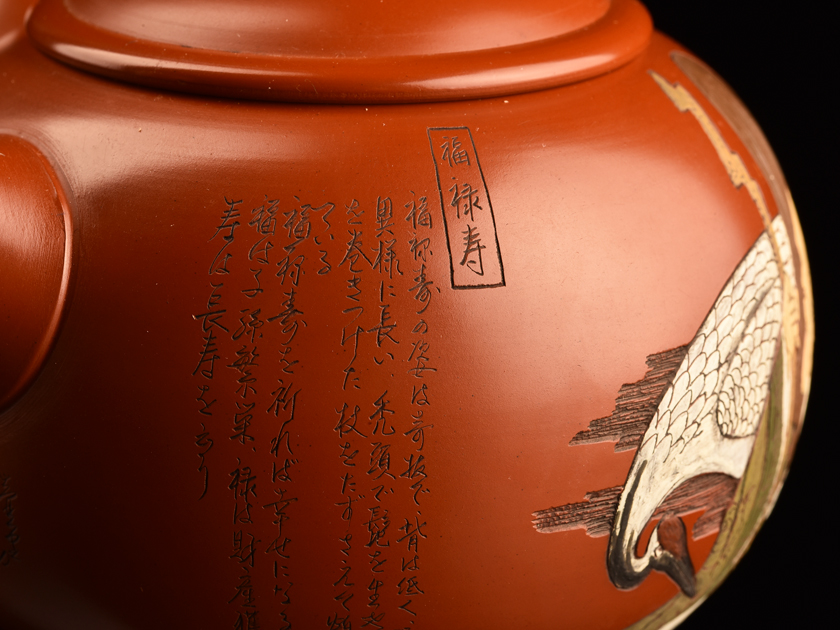 福禄寿
福禄寿の姿は奇抜で、背は低く、
異様に長い、禿頭で髭を生や
を巻きつけた杖をたずさえて頬
ている
福禄寿を祈れば幸せになる
福は子孫繁栄、禄は財産
寿は長寿を